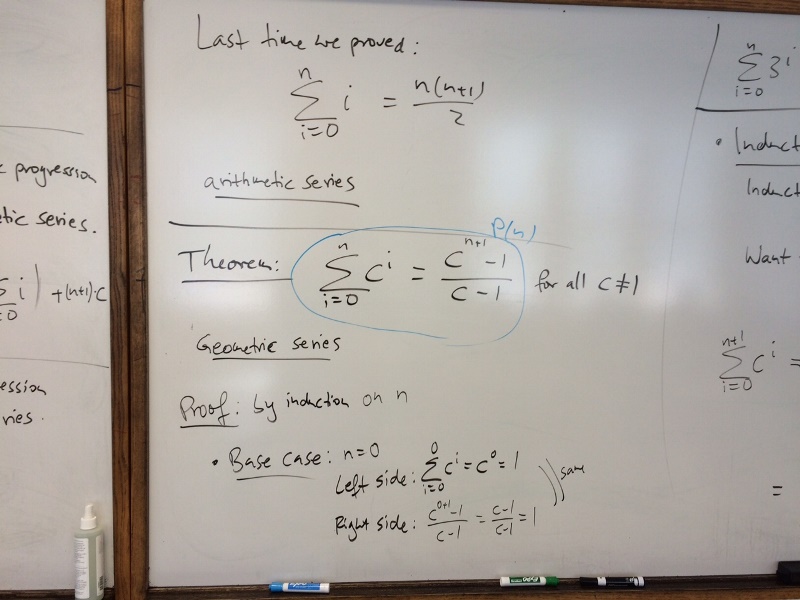 c progression
etic series.
i) +(n+1)·c
ession
ries.
Last time we proved:
n
∑ i = n(n+1)/2
i=0
arithmetic series
P(n)
Theorem: ∑_{i=0}^{n} c^i = (c^{n+1} - 1)/(c - 1) for all c≠1
Geometric series
Proof: by induction on n
• Base case: n=0
Left side: ∑_{i=0}^{0} c^i = c^0 = 1
same
Right side: (c^{0+1} - 1)/(c - 1) = (c-1)/(c-1) = 1
∑_{i=0}^{n} 3^i
• Induct
Induct
Want
∑_{i=0}^{n+1} c^i =
=